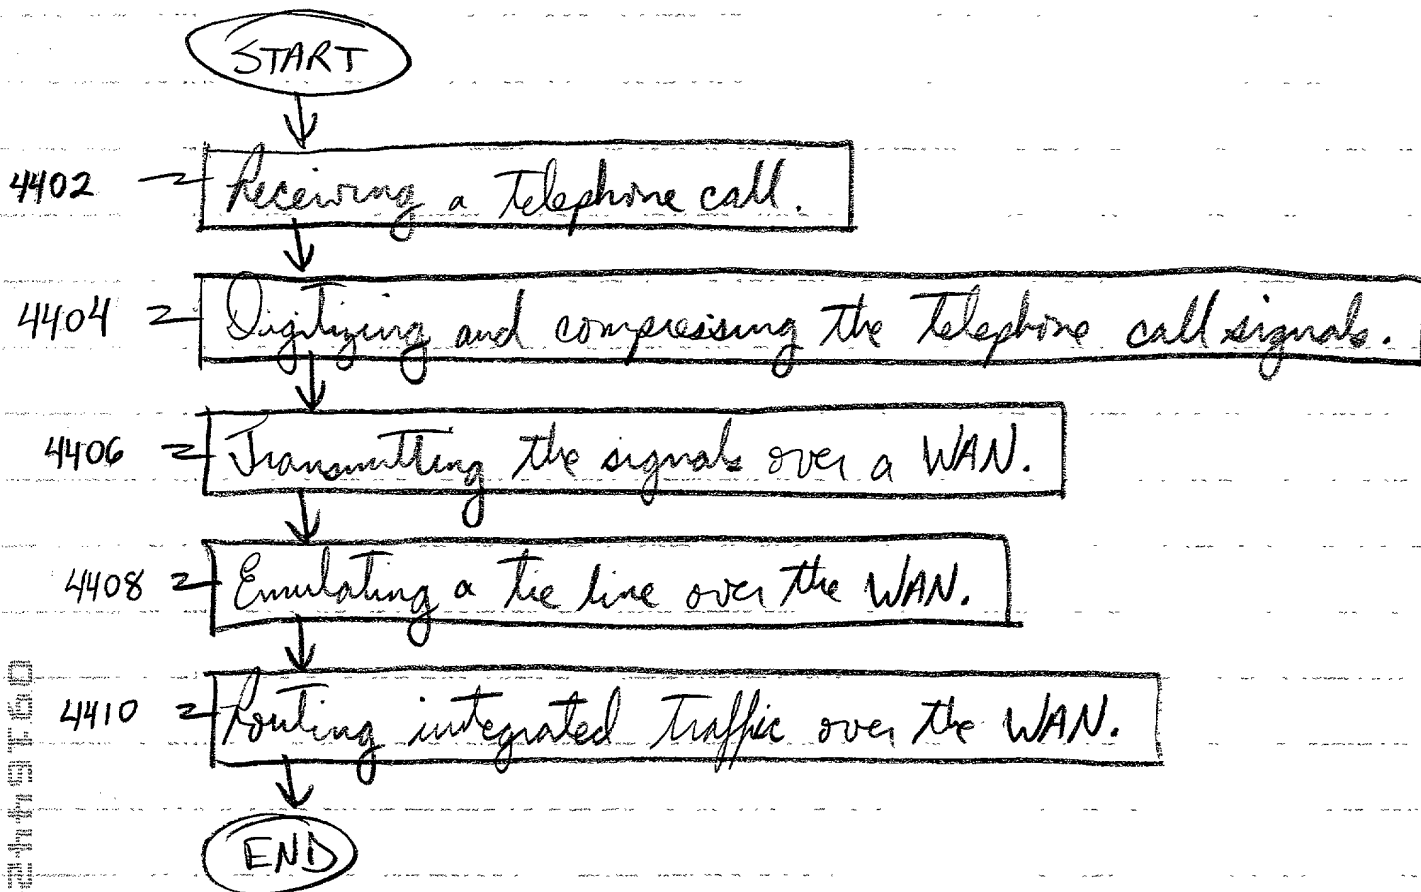 START
4402 Receiving a telephone call.
4404 Digitizing and compressing the telephone call signals.
4406 Transmitting the signals over a WAN.
4408 Emulating a tie line over the WAN.
4410 Routing integrated traffic over the WAN.
END